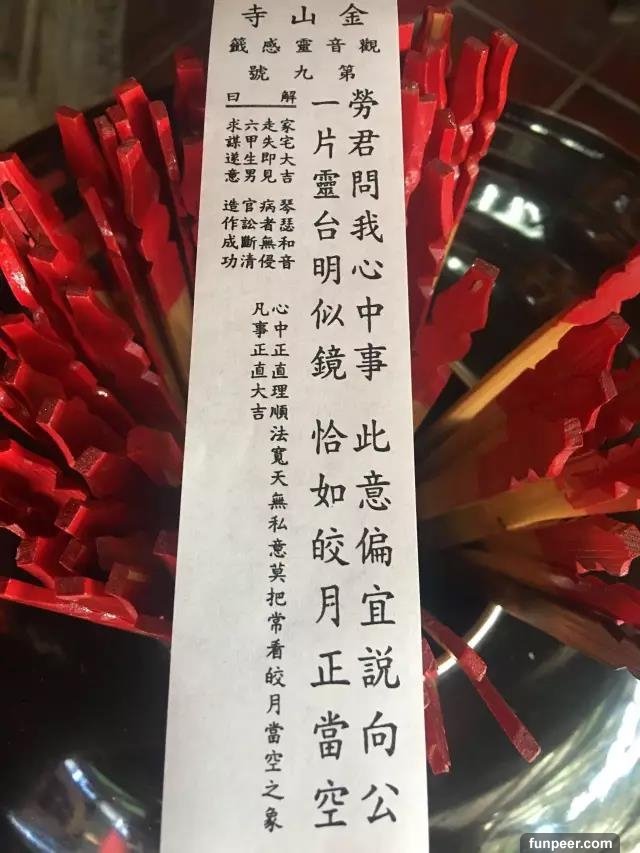 金山寺
觀音靈感籤
第九號
勞君問我心中事 此意偏宜説向公
一片靈台明似鏡 恰如皎月正當空
解曰
家宅大吉 琴瑟和音
走失即見 病者無侵
六甲生男 官訟斷清
求謀遂意 造作成功
心中正直理順法寬天無私意莫把常看皎月當空之象
凡事正直大吉
funpeer.com